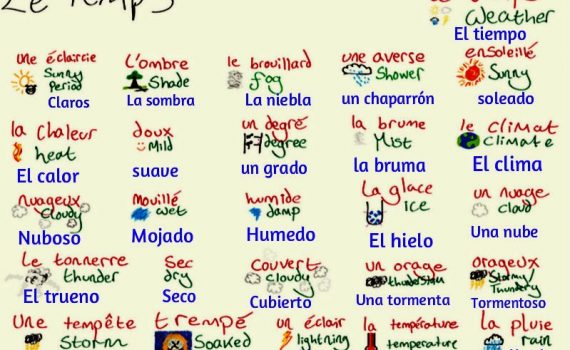 Le Temps
Weather
El tiempo
une éclaircie
Sunny
Period
Claros
L'ombre
Shade
La sombra
le brouillard
fog
La niebla
une averse
Shower
un chaparrón
ensoleillé
Sunny
soleado
la chaleur
heat
El calor
doux
Mild
suave
un degré
degree
un grado
la brume
Mist
la bruma
le climat
Climate
El clima
nuageux
Cloudy
Nuboso
mouillé
wet
Mojado
humide
damp
Humedo
La glace
ice
El hielo
un nuage
cloud
Una nube
Le tonnerre
thunder
El trueno
Sec
dry
Seco
Couvert
cloudy
Cubierto
un orage
Una tormenta
orageux
Stormy/
Thundery
Tormentoso
Une tempête
Storm
trempé
Soaked
un éclair
lightning
la température
temperature
la pluie
rain